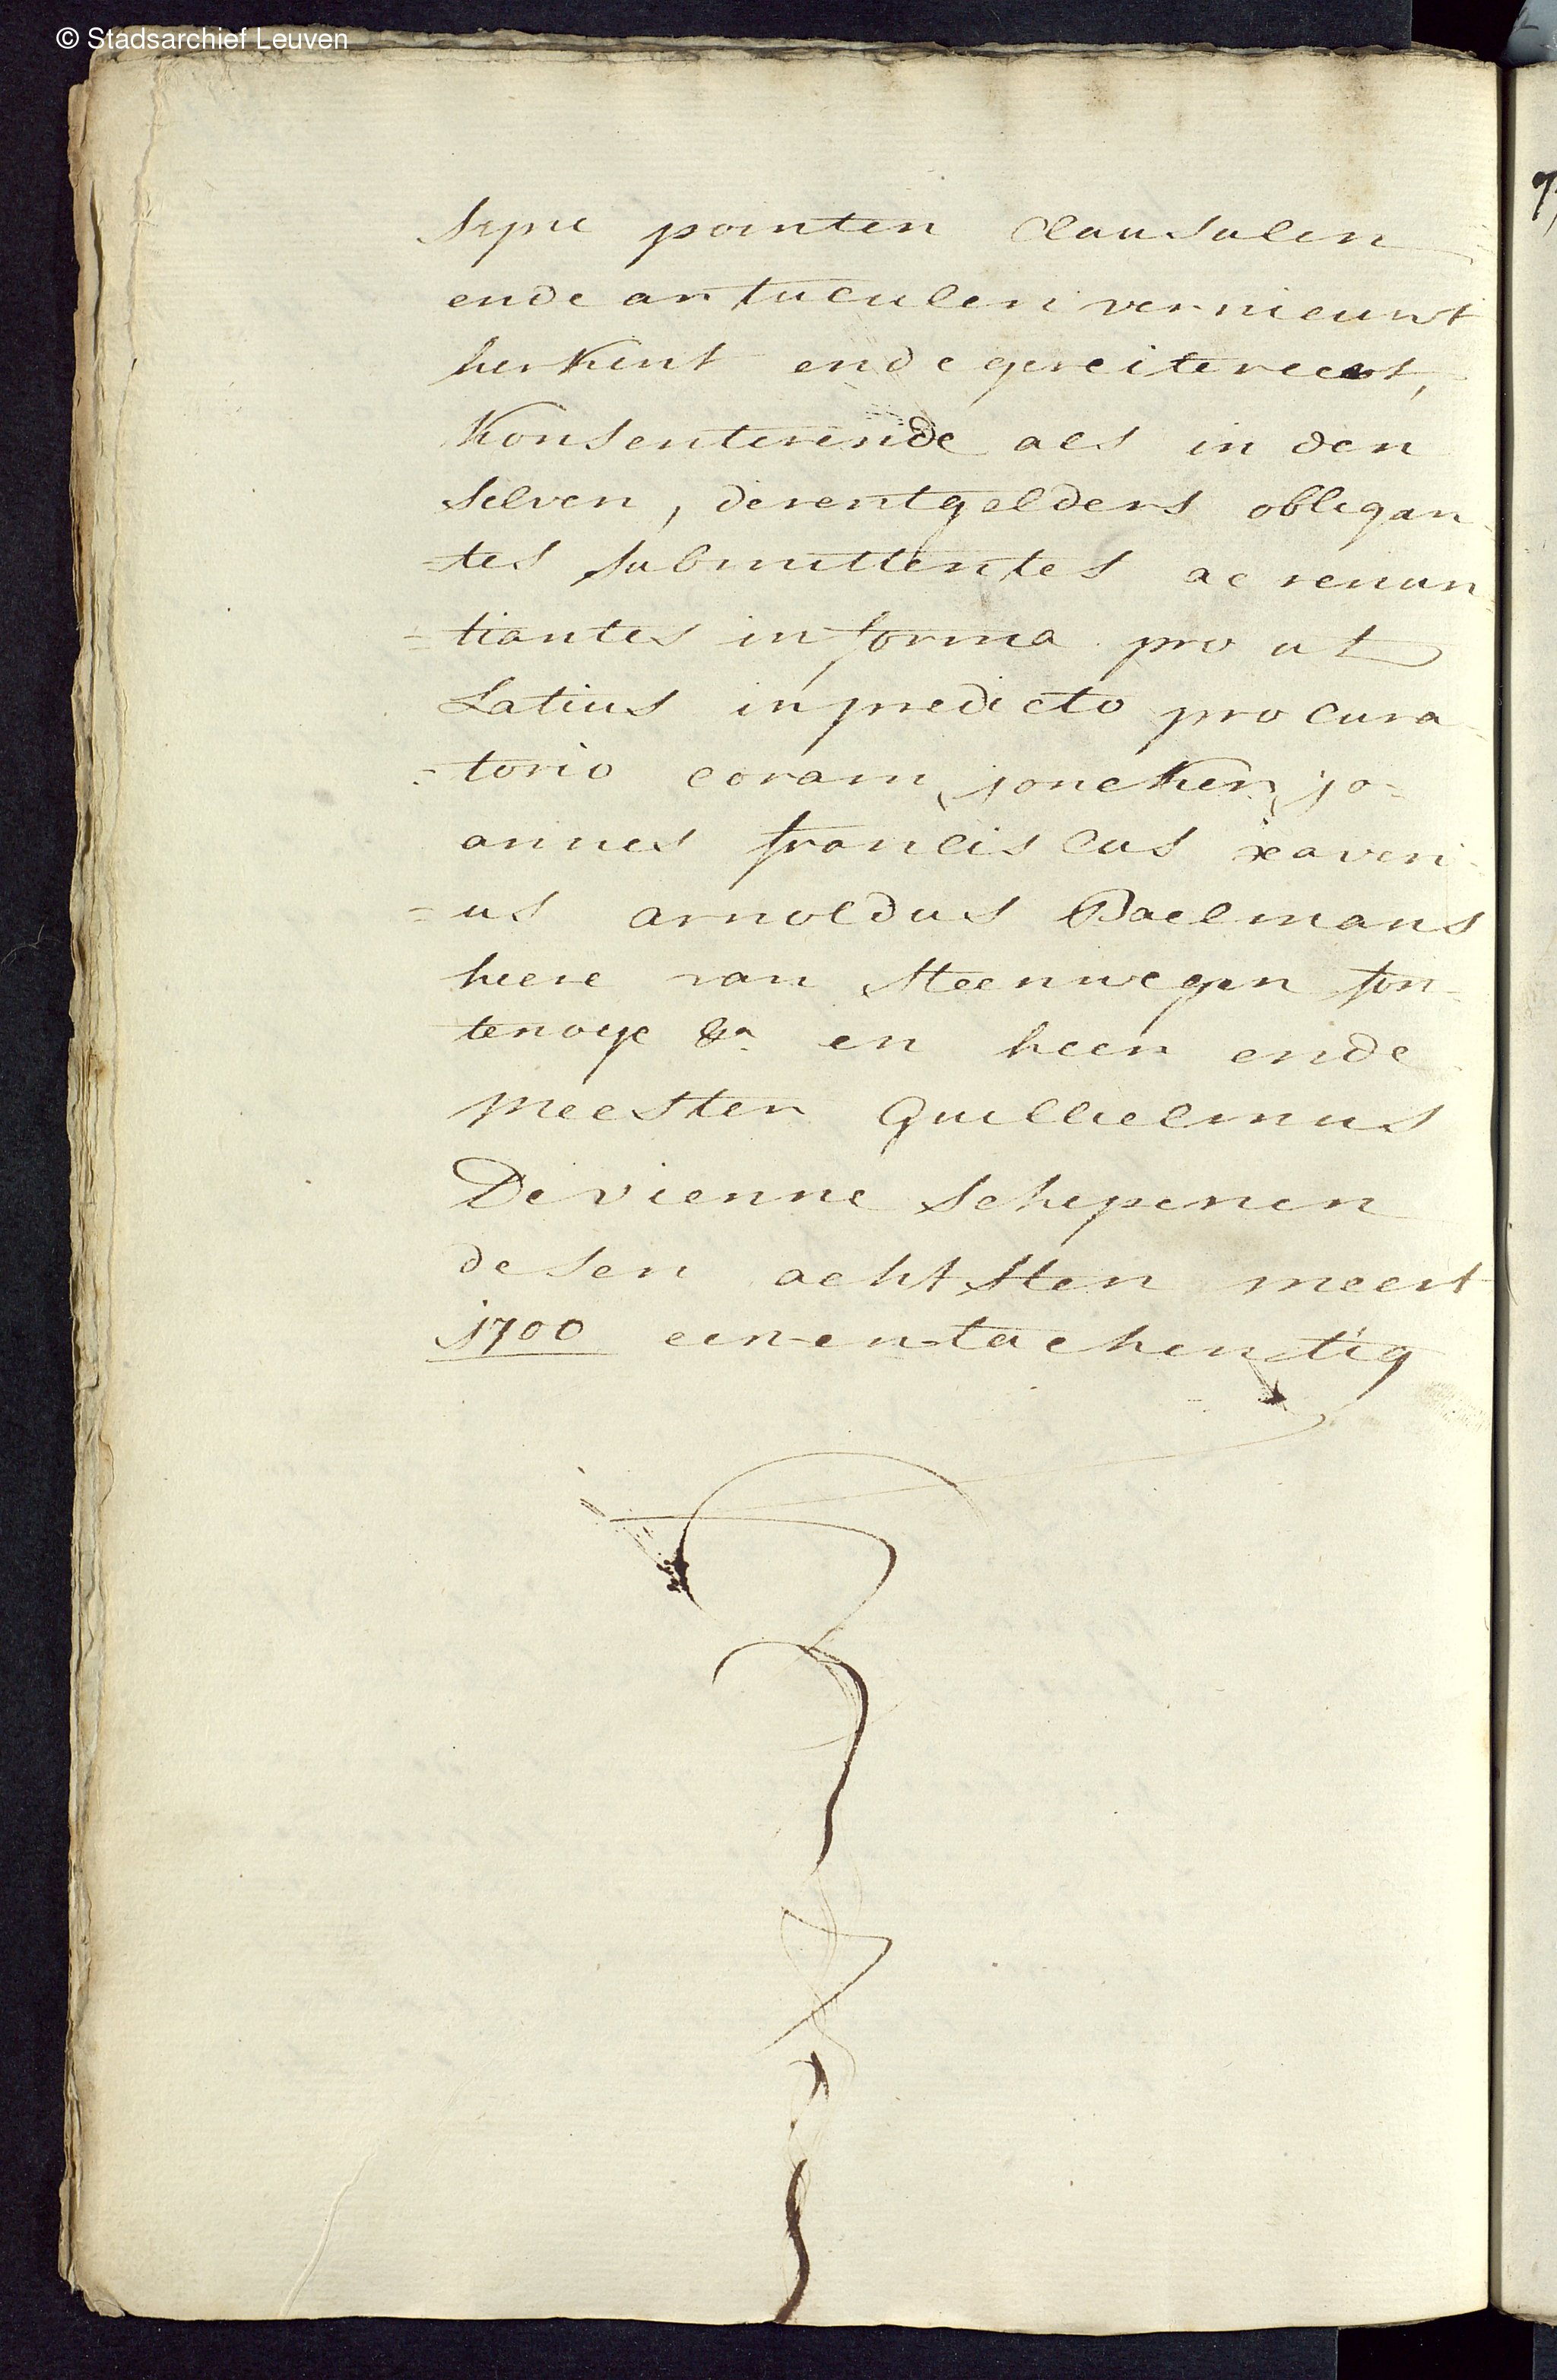 © Stadsarchief Leuven
syne pointen Clausulen
ende artuculen vernieuwt
herkent ende gereitereert,
Konsenterende als in den
selven, derentgelders obligan
-tes submittentes ac renun
=tiantes in forma pro ut
Latius in predicto procura
=torio coram joncker jo=
annes franciscus xaveri
=us arnoldus Baelmans
heere van Steenwegen fon
tenoye &a en heer ende
meester Guillielmus
De vienne schepenen
desen achtsten meert
1700 een-en-tachentig